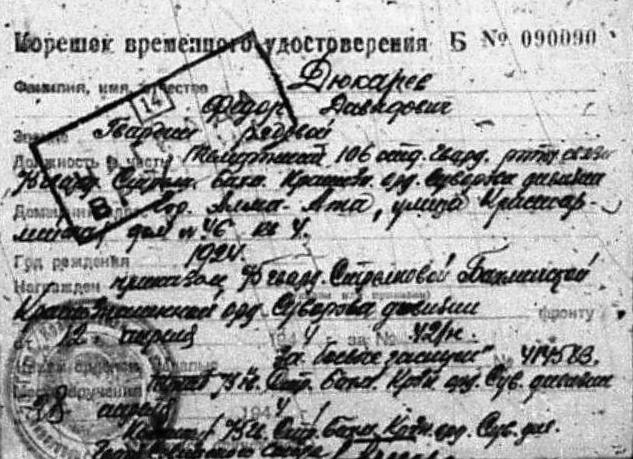 Корешок временного удостоверения Б № 090090
Фамилия, имя, отчество Дюкарев
Федор Давидович
Звание Гвардии рядовой
14
Должность и часть Телефонист 106 отд. Гвард. роты связи
гвард. Стрелк. Бахм. Краснозн. орд. Суворова дивизии
гор. Алма-Ата, улица Красноар-
мейская дом № 46 кв 4.
Год рождения 1924.
Награжден приказом гвард. Стрелковой Бахмачской
Краснознаменной орд. Суворова дивизии
фронту
от 12 апреля 1944 за № 42/н.
За боевые заслуги" № 414583.
вручения штаб 75 гв. Стр. Бахм. Кр. Зн. орд. Сув. дивизии
апреля 1944
75 гв. Стр. Бахм. Кр. Зн. орд. Сув. див.